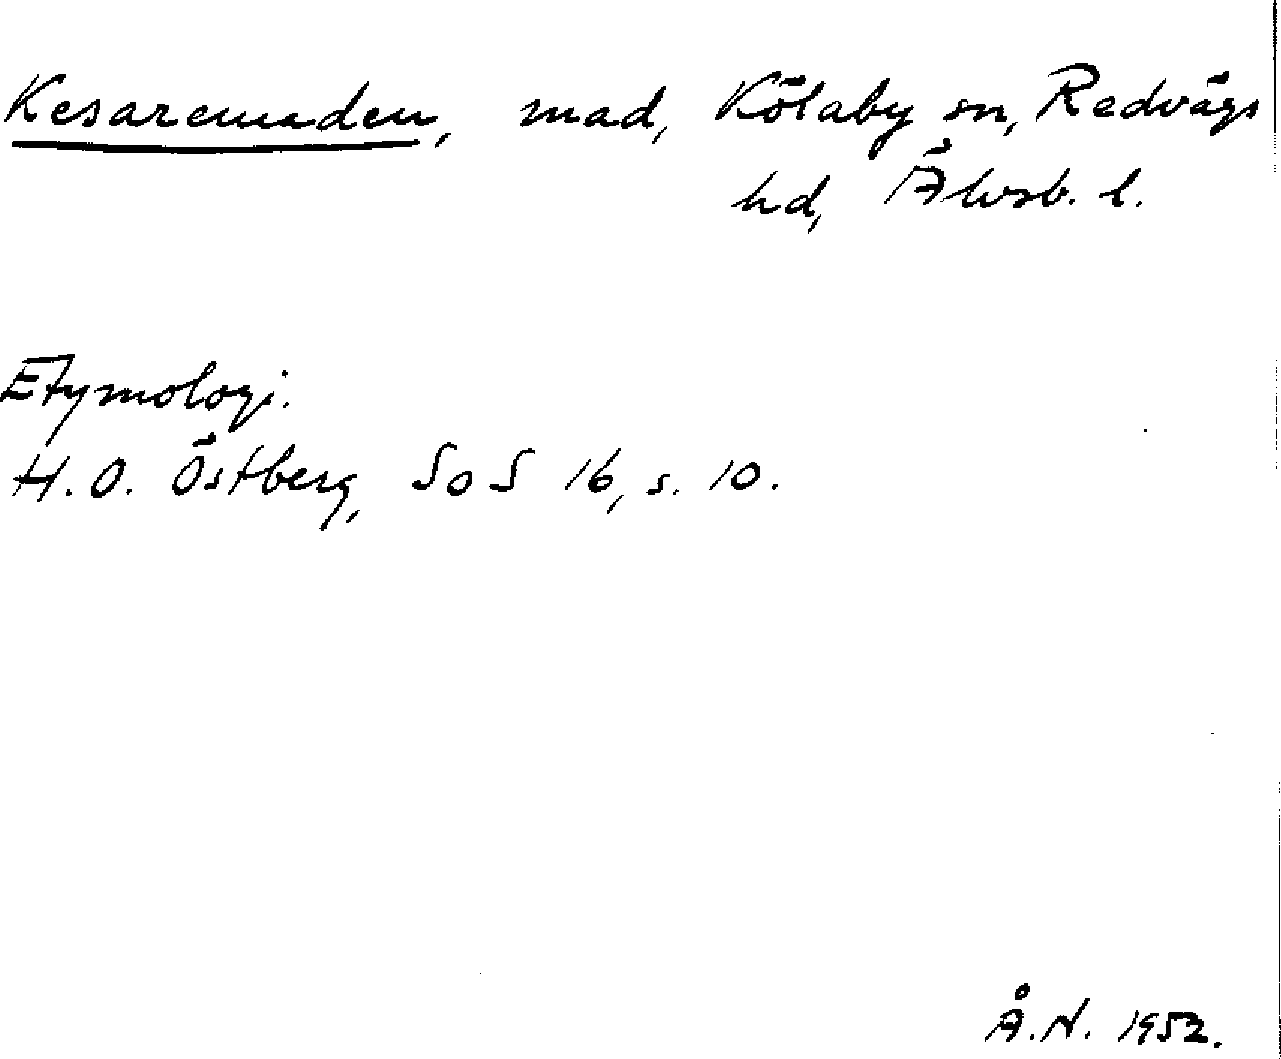 Kesaremaden, mad, Kölaby sn, Redvägs
hd, Älvsb. l.
Etymologi.
H. O. Östberg, SoS 16, s. 10.
Å. N. 1952.